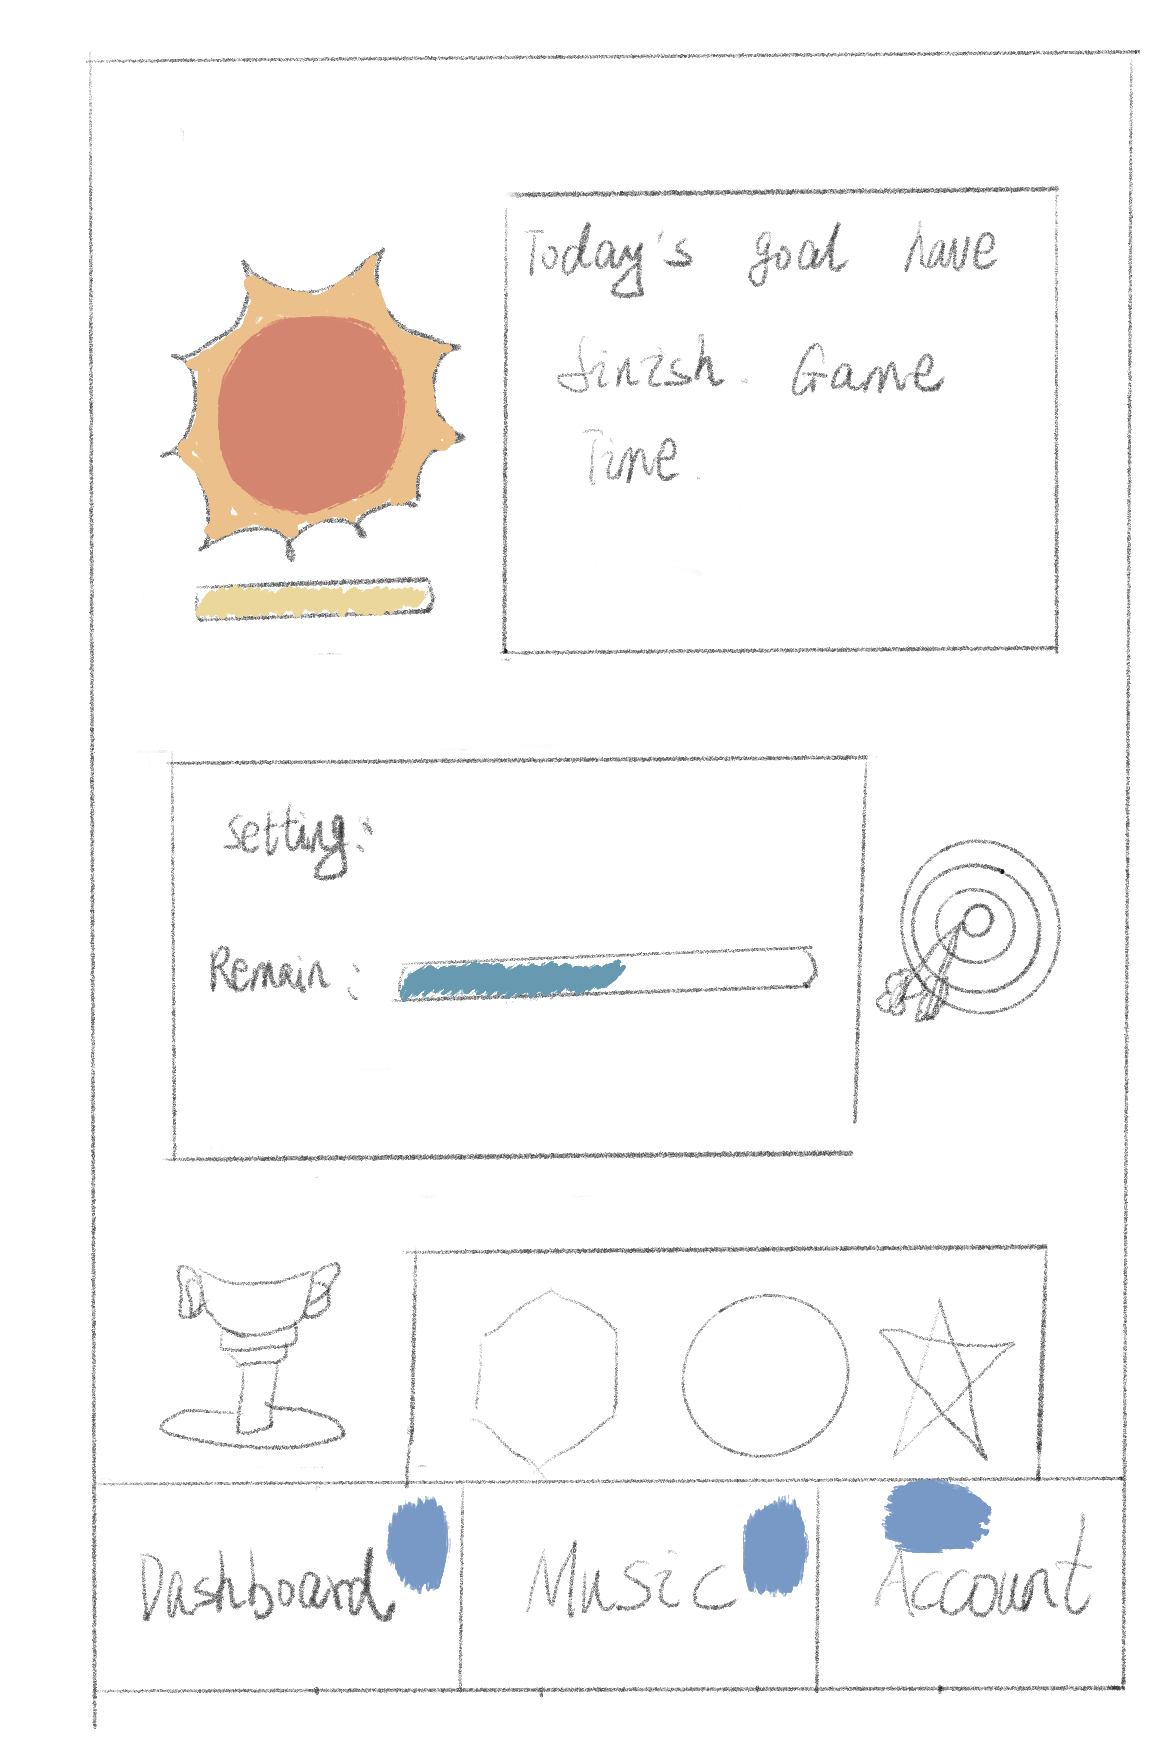 Today's goal have
finish. Game
Time.
Setting:
Remain:
Dashboard
Music
Account